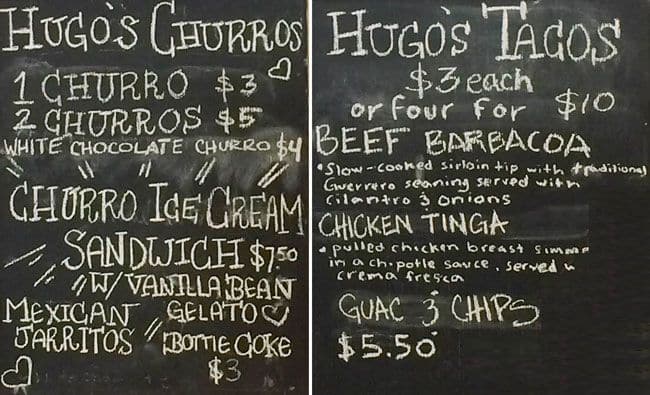 HUGO'S CHURROS
1 CHURRO $3
2 CHURROS $5
WHITE CHOCOLATE CHURRO $4
CHURRO ICE CREAM
SANDWICH $7.50
W/ VANILLA BEAN
GELATO
MEXICAN
JARRITOS // BOTTLE COKE
$3
HUGO'S TACOS
$3 each
or four for $10
BEEF BARBACOA
• Slow-cooked sirloin tip with traditional
Guerrero seaning served with
cilantro & onions
CHICKEN TINGA
• pulled chicken breast simme
in a chipotle sauce, served w
crema fresca
GUAC & CHIPS
$5.50